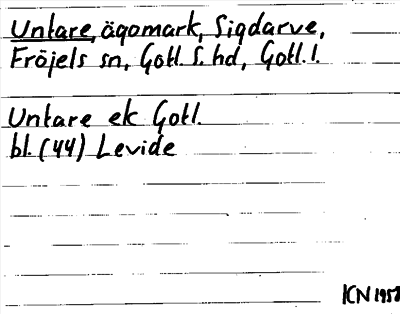 Untare, ägomark, Sigdarve,
Fröjels sn, Gotl. S. hd, Gotl. l.
Untare ek Gotl.
bl. (44) Levide
ICN 1958